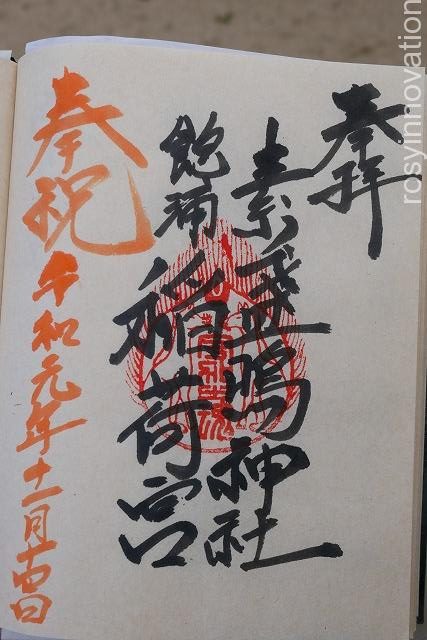 奉拝
素盞嗚神社
飽浦
稲荷宮
奉祝
令和元年十一月四日
rosyinnovation